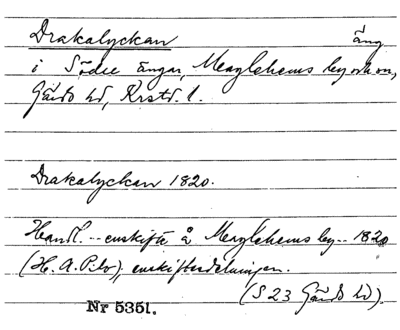 Drakalyckan äng
i Södre ängar, Maglehems by och sn,
Gärds hd, Krstd. l.
Drakalyckan 1820.
Handl. -- enskifte å Maglehems by -- 1820
(H. A. Pilo), enskiftesdelningen.
(S 23 Gärds hd).
Nr 5351.